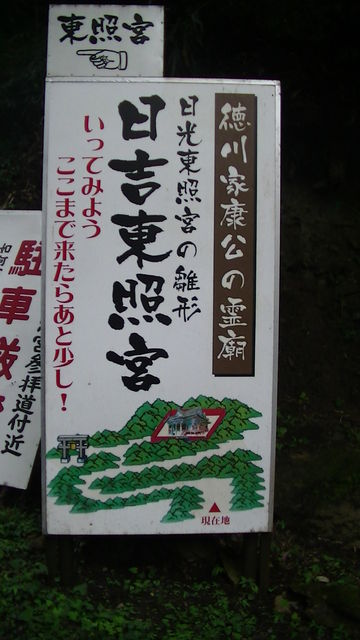 東照宮
徳川家康公の霊廟
日光東照宮の雛形
日吉東照宮
いってみよう
ここまで来たらあと少し！
現在地
駐車厳
宮参拝道付近